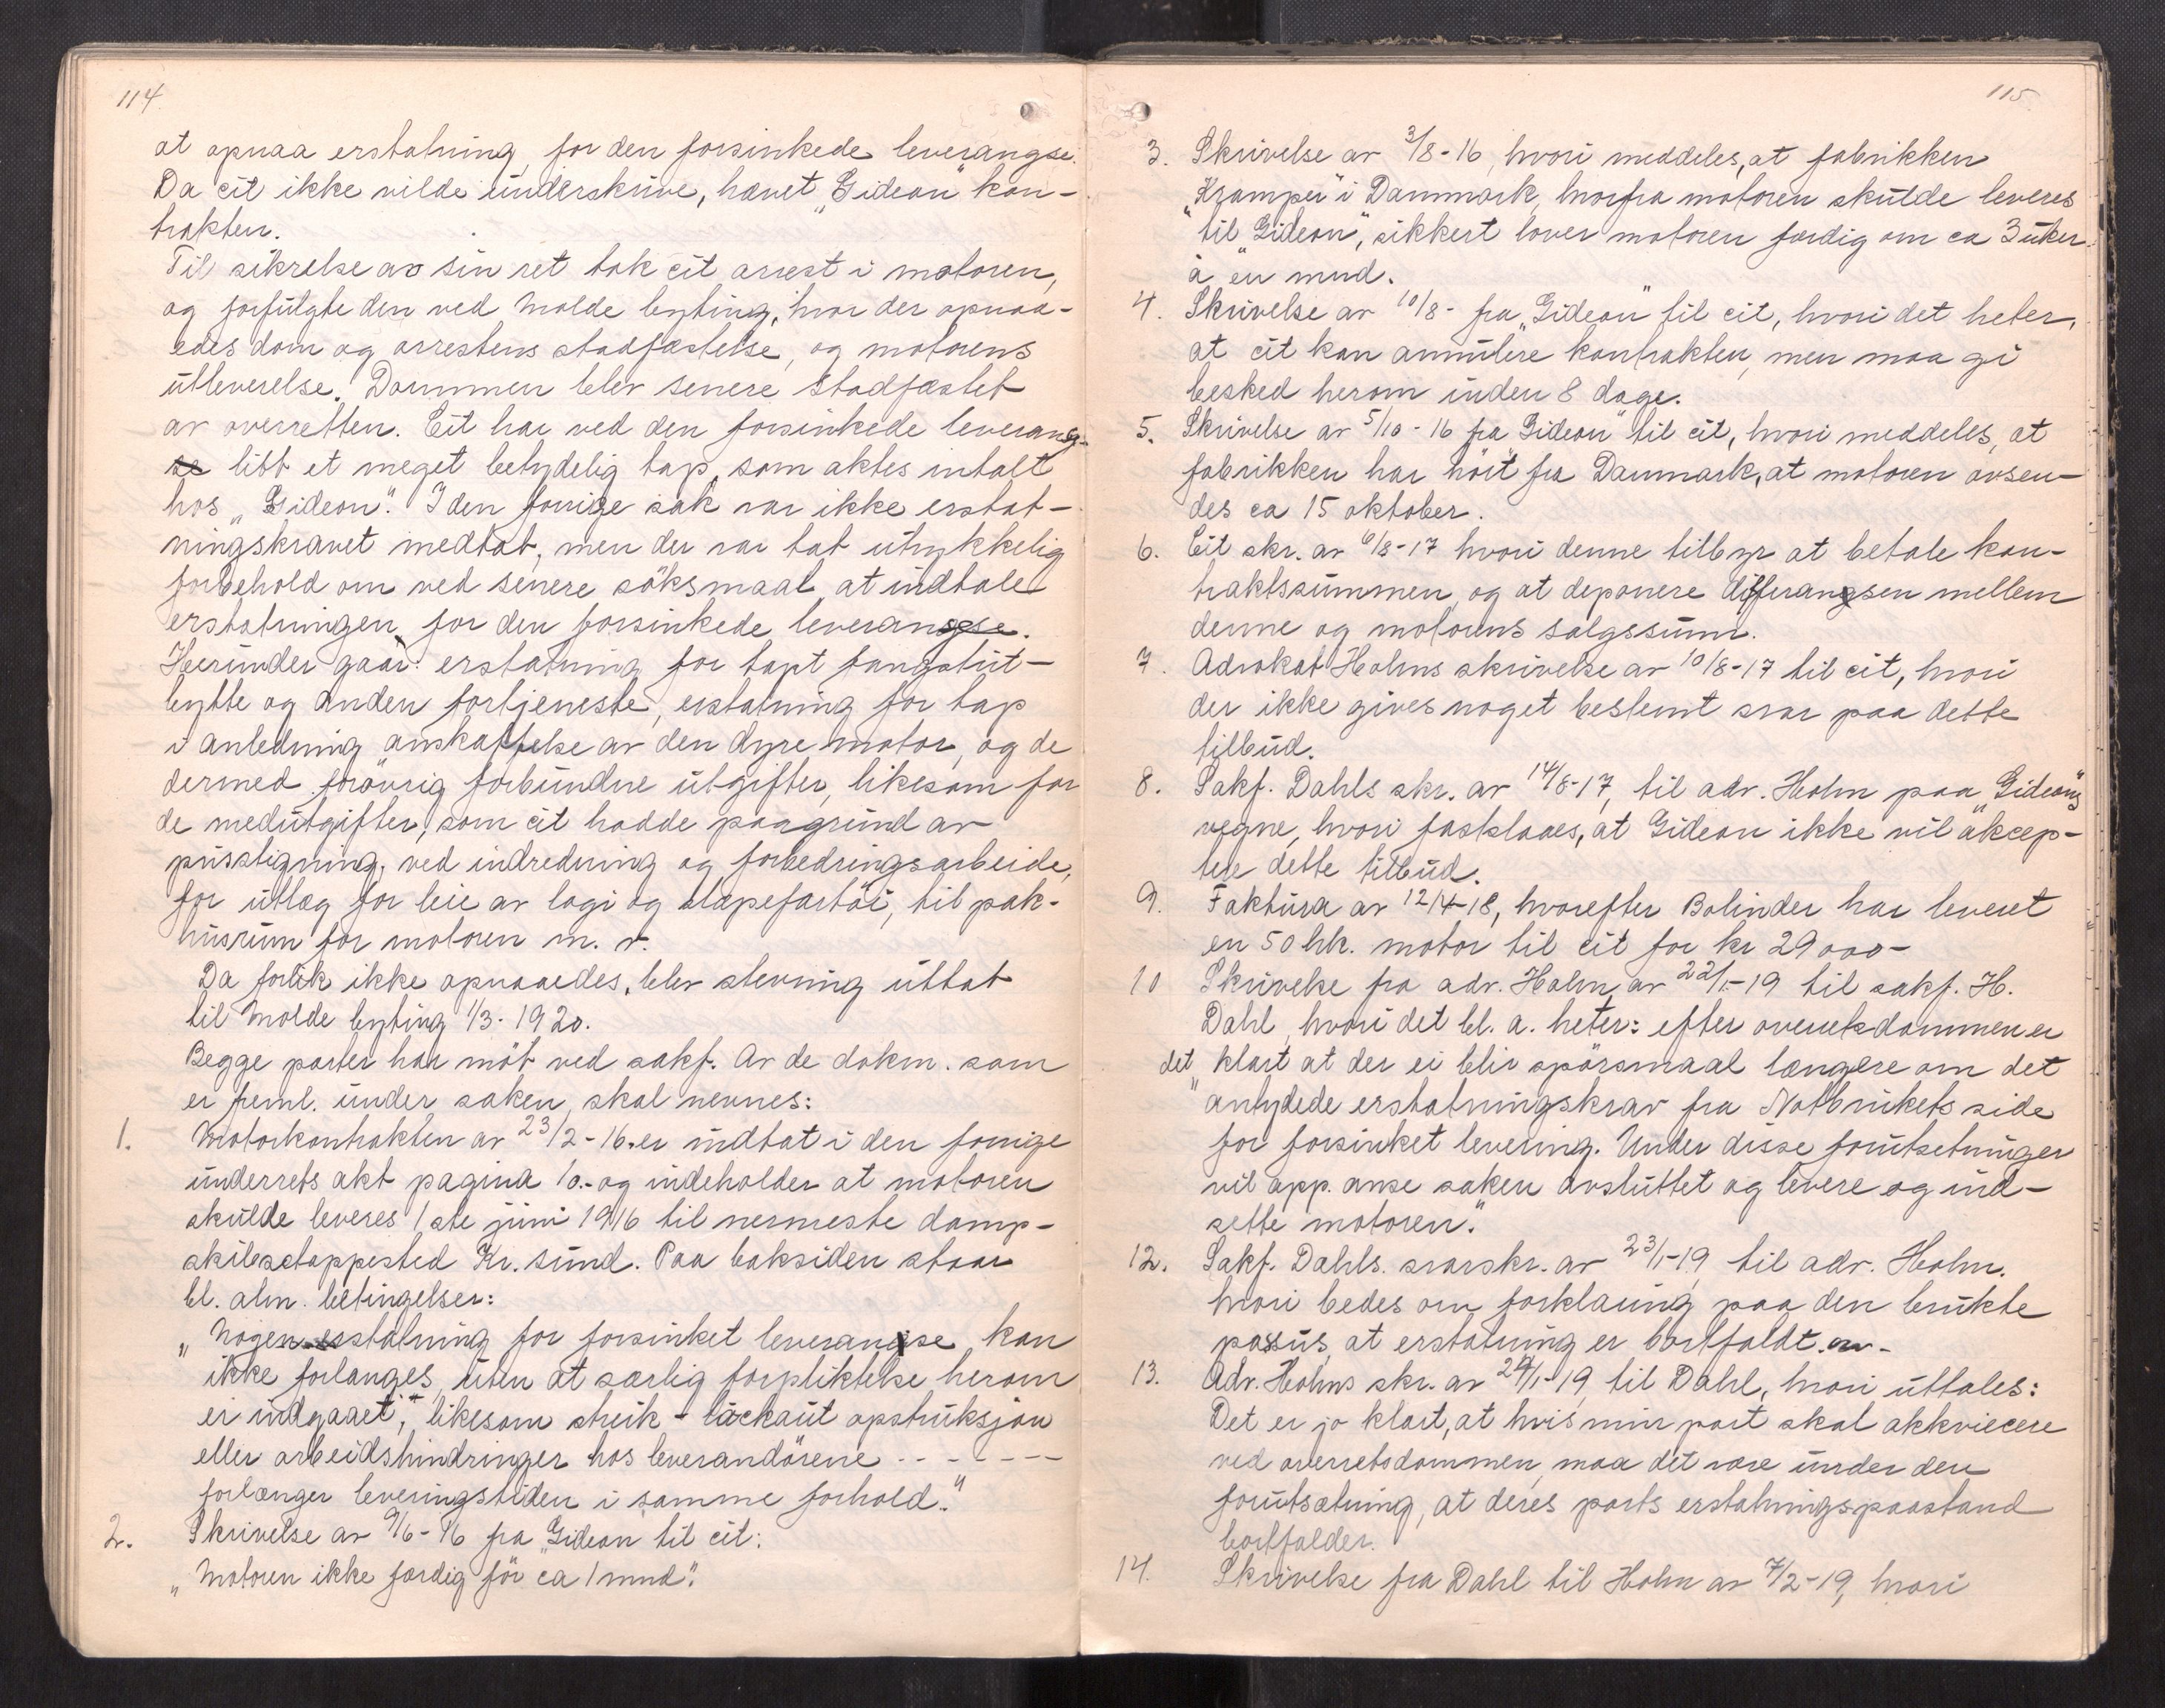 114.
at opnaa erstatning, for den forsinkede leverangse.
Da cit ikke vilde underskrive, hævet „Gideon" kon-
trakten.
Til sikrelse av sin ret tok cit arrest i motoren,
og forfulgte den ved Molde byting, hvor der opnaa-
edes dom og arrestens stadfæstelse, og motorens
utleverelse. Dommen blev senere stadfæstet
av overretten. Cit har ved den forsinkede leverang-
se litt et meget betydelig tap, som aktes intalt
hos „Gideon". I den forrige sak var ikke erstat-
ningskravet medtat, men der var tat utrykkelig
forbehold om ved senere söksmaal, at indtale
erstatningen for den forsinkede leverangse.
Herunder gaar: erstatning for tapt fangstut-
bytte og anden fortjeneste, erstatning for tap
i anledning anskaffelse av den dyre motor, og de
dermed forövrig forbundne utgifter, likesom for
de medutgifter, som cit hadde paagrund av
prisstigning, ved indredning og forbedringsarbeide,
for utlæg for leie av logi og slæpefartöi, til pak-
husrum for motoren m. v.
Da forlik ikke opnaaedes, blev stevning uttat
til Molde byting 1/3- 1920.
Begge parter har möt ved sakf. Av de dokm. som
er freml. under saken, skal nevnes:
1. Motorkontrakten av 23/2-16. er indtat i den forrige
underrets akt pagina 10.- og indeholder at motoren
skulde leveres 1ste juni 1916 til nermeste damp-
skibsstoppested Kr. sund. Paa baksiden staar
bl. alm. betingelser:
„Nogen erstatning for forsinket leverangse kan
ikke forlanges, uten at særlig forpliktelse herom
er indgaaet, likesom streik - lackaut opstruksjon
eller arbeidshindringer hos leverandörene - - - - - - -
forlænger leveringstiden i samme forhold."
2. Skrivelse av 9/6-16 fra „Gideon til cit:
„Motoren ikke færdig för ca 1 mnd".
115.
3. Skrivelse av 3/8-16, hvori meddeles, at fabrikken
„Kramper" i Danmark, hvorfra motoren skulde leveres
til „Gideon", sikkert lover motoren færdig om ca 3 uker
à en mnd.
4. Skrivelse av 10/8- fra „Gideon" til cit, hvori det heter,
at cit kan annulere kontrakten, men maa gi
besked herom inden 8 dage.
5. Skrivelse av 5/10-16 fra Gideon" til cit, hvori meddeles, at
fabrikken har hört fra Danmark, at motoren avsen-
des ca 15 oktober.
6. Cit skr. av 6/8-17 hvori denne tilbyr at betale kon-
traktssummen, og at deponere differangsen mellem
denne og motorens salgssum.
7. Advokat Holms skrivelse av 10/8-17 til cit, hvori
der ikke gives noget bestemt svar paa dette
tilbud.
8. Sakf. Dahls skr. av 14/8-17, til adv. Holm paa „Gideons"
vegne, hvori fastslaaes, at Gideon ikke vil aksep-
tere dette tilbud.
9. Faktura av 12/4-18, hvorefter Bolinder har leveret
en 50 hk. motor til cit for kr 29 000-
10 Skrivelse fra adv. Holm, av 22/1-19 til sakf. H.
Dahl, hvori det bl. a. heter: efter overretsdommen er
det „klart at der ei blir spörsmaal længere om det
antydede erstatningskrav fra Notbrukets side
for forsinket levering. Under disse forutsetninger
vil app. anse saken avsluttet og levere og ind-
sette motoren."
12. Sakf. Dahls. svarskr. av 23/1-19 til adv. Holm.
hvori bedes om forklaring paa den brukte
passus, at erstatning er bortfaldt.
13. Adv. Holms skr. av 24/1-19 til Dahl, hvori uttales:
Det er jo klart, at hvis min part skal akkviecere
ved overretsdommen, maa det være under den
forutsætning, at deres parts erstatningspaastand
bortfalder.
14. Skrivelse fra Dahl til Holm av 7/2-19, hvori